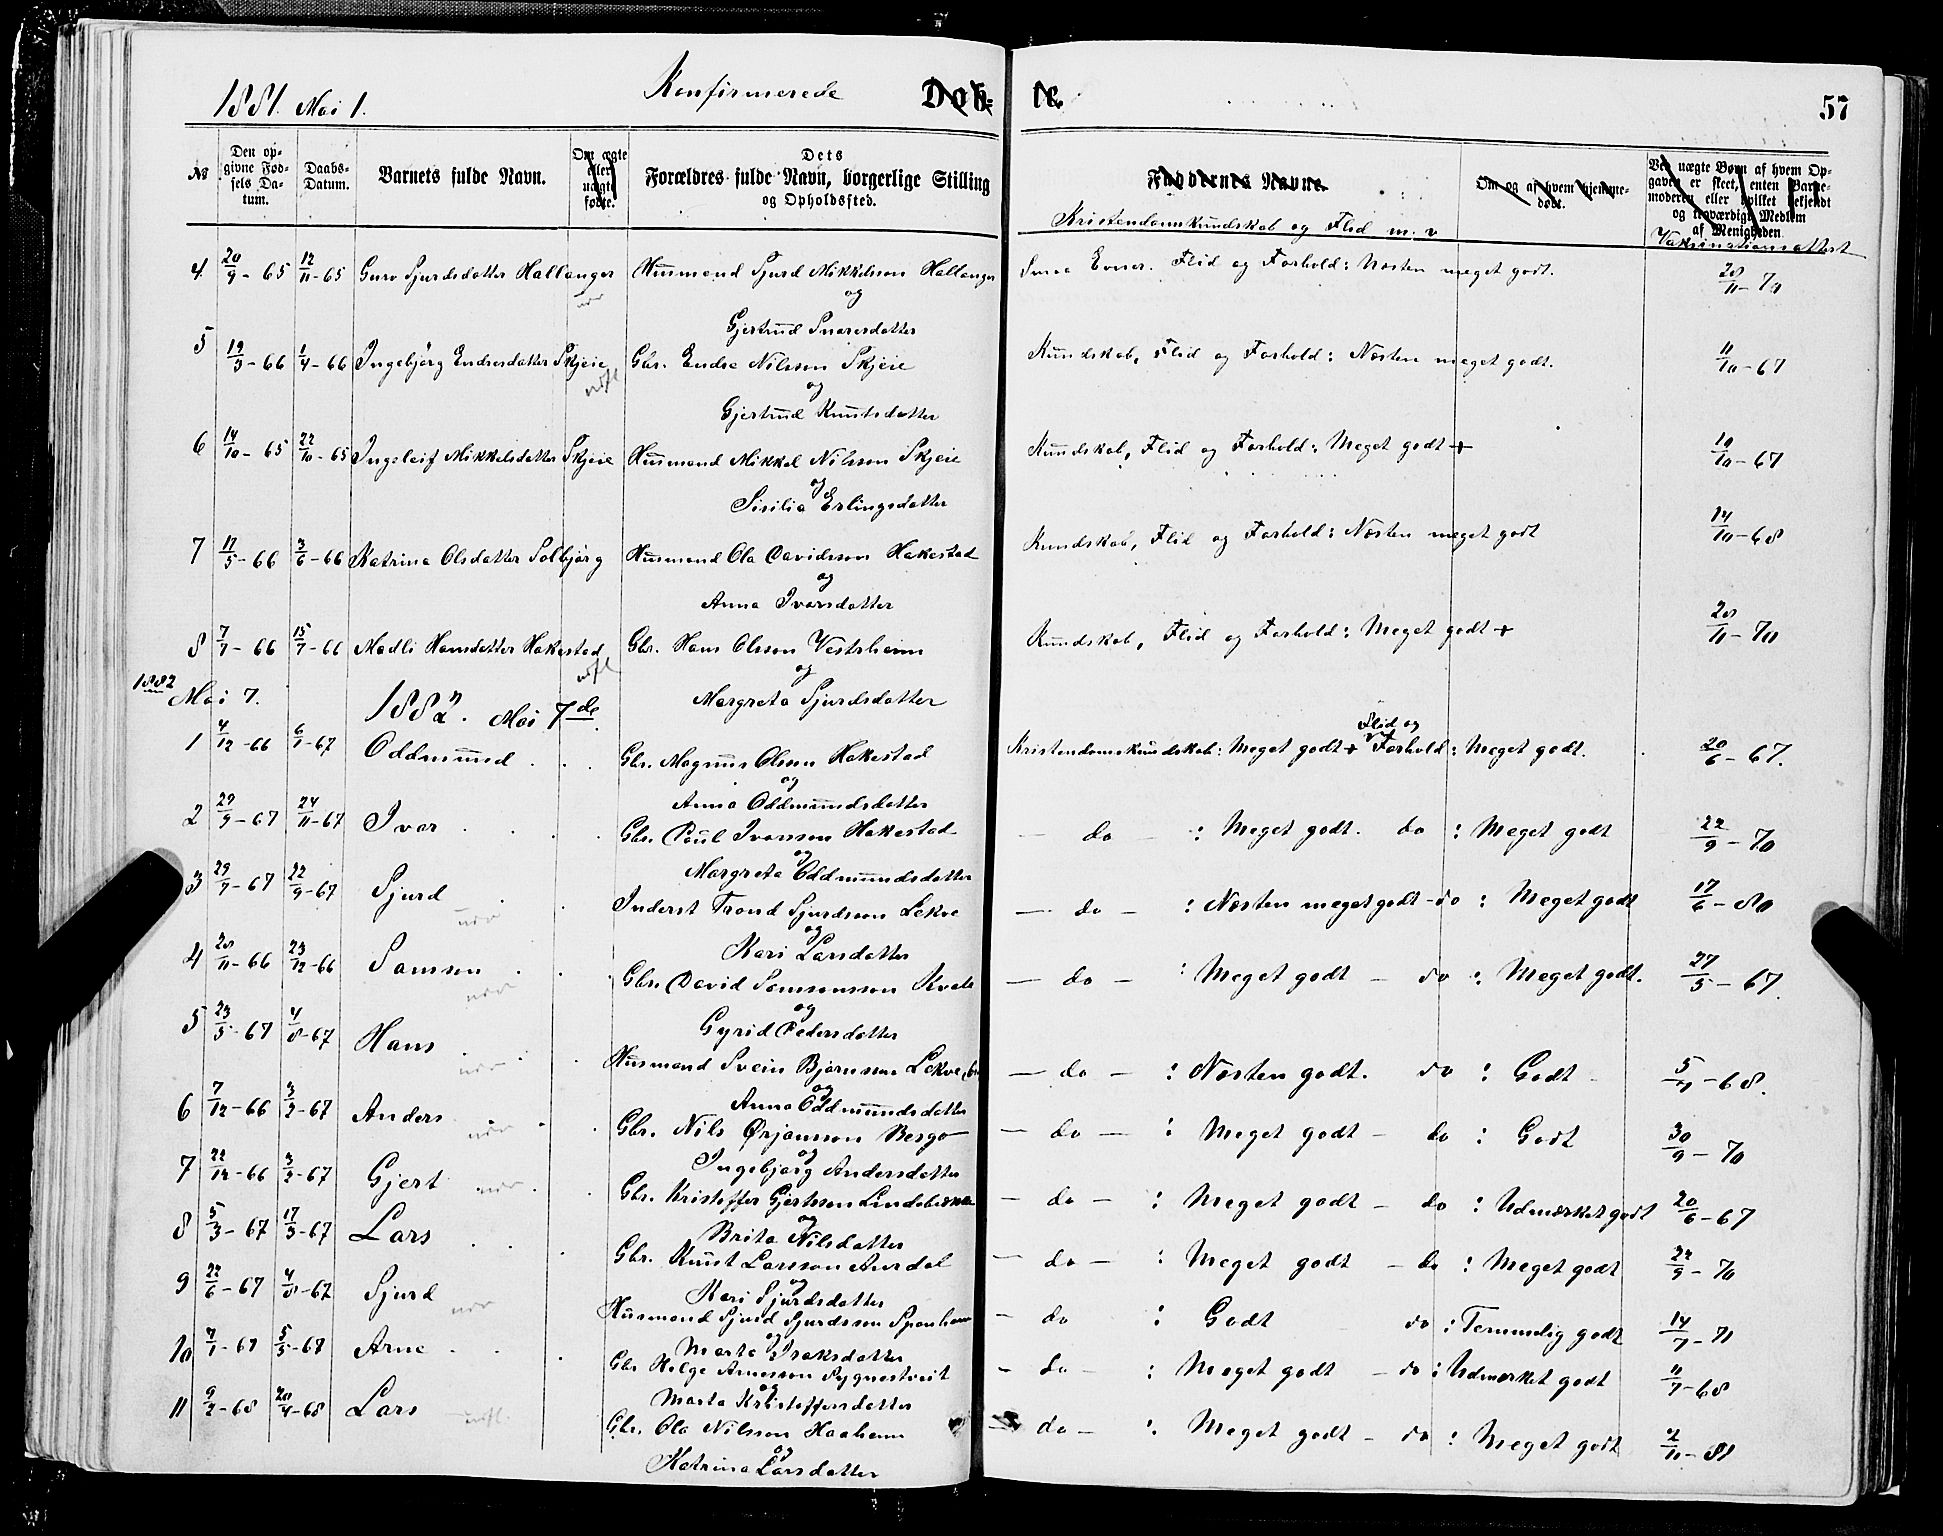 1881. Mai 1.
Konfirmerede
Døb-
te.
57
№
Den opgivne Fødsels Datum.
Daabs-Datum.
Barnets fulde Navn.
Om ægte eller uægte født.
Dets
Forældres fulde Navn, borgerlige Stilling
og Opholdssted.
Faddernes Navne.
Kristendomskundskab og Flid m. v
Om og af hvem hjemmedøbt.
Ved uægte Børn af hvem Opgaven er skeet, enten Barnemoderen eller hvilket bekjendt og troværdigt Medlem af Menigheden
Vaksinationsattest
4. 20/9 - 65 12/11 - 65 Guro Sjurdsdatter Hallanger Husmand Sjurd Mikkelsson Hallanger Smaa Evner. Flid og Forhold: Næsten meget godt. 28/11 - 70
og
Gjertrud Snaresdatter
5 19/3 - 66 1/4 - 66 Ingebjørg Endresdatter Skjeie Gbr. Endre Nilsson Skjeie Kundskab, Flid og Forhold: Næsten meget godt. 11/10 - 67
og
Gjertrud Knutsdatter
6 14/10 - 65 22/10 - 65 Ingeleif Mikkelsdatter Skjeie Husmand Mikkel Nilsson Skjeie Kundskab, Flid og Forhold: Meget godt + 10/10 - 67
og
Sisilia Erlingsdatter
7 17/5 - 66 3/6 - 66 Katrina Olsdatter Solbjørg Husmand Ola Davidsson Hakestad Kundskab, Flid og Forhold: Næsten meget godt 14/10 - 68
og
Anna Ivarsdatter
8 7/7 - 66 15/7 - 66 Madli Hansdatter Hakestad Gbr. Hans Olsson Vestrheim Kundskab, Flid og Forhold: Meget godt + 28/11 - 70
og
Margreta Sjurdsdatter
1882
Mai 7.
1882. Mai 7de.
1 4/12 - 66 6/1 - 67 Oddmund Gbr. Magnus Olsson Hakestad Kristendomskundskab: Meget godt + Flid og Forhold: Meget godt. 20/6 - 67.
og
Anna Oddmundsdatter
2 29/9 - 67 24/11 - 67 Ivar Gbr. Paul Ivarsson Hakestad — do — : Meget godt. do : Meget godt 22/9 - 70
og
Margreta Oddmundsdatter
3 29/7 - 67 22/9 - 67 Sjurd Inderst Trond Sjurdsson Lekve — do — : Næsten meget godt - do : Meget godt 17/6 - 80
og
Kari Larsdatter
4 28/11 - 66 23/12 - 66 Samson Gbr. David Samsonsson Kvale — do — : Meget godt — do : Meget godt. 27/5 - 67.
og
Gyrid Pedersdatter
5 23/5 - 67 4/8 - 67 Hans Husmand Svein Bjørnsson Lekve — do — : Næsten godt. do : Godt 5/7 - 68.
og
Anna Oddmundsdatter
6 7/12 - 66 3/2 - 67 Anders Gbr. Nils Ørjansson Bergo — do — : Meget godt — do : Godt 30/9 - 70
og
Ingebjørg Andersdatter
7 22/12 - 66 3/2 - 67 Gjert Gbr. Kristoffer Gjertsson Lindebrekke — do — : Meget godt — do : Udmærket godt 20/6 - 67
og
Brita Nilsdatter
8 5/3 - 67 17/3 - 67 Lars Gbr. Knut Larsson Aurdal — do — : Meget godt — do : Meget godt 22/9 - 70
og
Kari Sjurdsdatter
9 22/6 - 67 4/8 - 67 Sjurd Husmand Sjurd Sjurdsson Sponheim — do : Godt do : Temmelig godt 14/7 - 71
og
Marta Isaksdatter
10 7/1 - 67 5/5 - 67 Arne Gbr. Helge Arnesson Sygnestveit - do — : Meget godt — do : Udmærket godt 11/7 - 68
og
Marta Kristoffersdatter
11 9/2 - 68 20/4 - 68 Lars Gbr. Ola Nilsson Haaheim — do — : Meget godt — do : Meget godt 2/10 - 81
og
Katrina Larsdatter